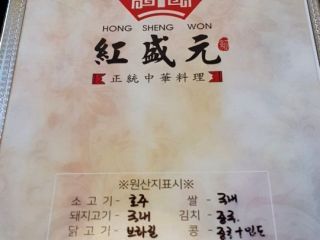 HONG SHENG WON
紅盛元
正統中華料理
※원산지표시※
소고기- 호주 쌀- 국내
돼지고기- 국내 김치- 중국.
닭고기- 브라질 콩- 중국+인도